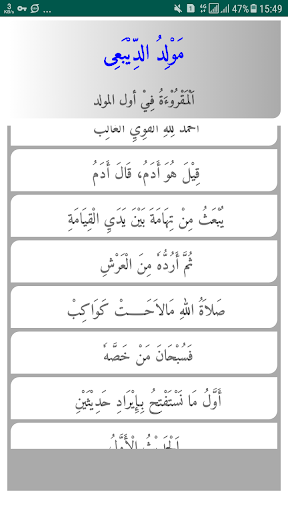 3 KB/s 47% 15:49
مَوْلِدُ الدِّيْبَعِى
اَلْمَقْرُوْءَةُ فِيْ أول المولد
احمد لِلّٰهِ القوِيِّ الغالِب
قِيْلَ هُوَ أَدَمُ، قَالَ أَدَمُ
يُبْعَثُ مِنْ تِهَامَةَ بَيْنَ يَدَيِ الْقِيَامَةِ
ثُمَّ أَرُدُّهُ مِنَ الْعَرْشِ
صَلاَةُ اللهِ مَالاَحَـــتْ كَوَاكِبْ
فَسُبْحَانَ مَنْ خَصَّهُ
أَوَّلُ مَا نَسْتَفْتِحُ بِإِيْرَادِ حَدِيْثَيْنِ
اَلْحَدِيْثُ الْأَوَّلُ